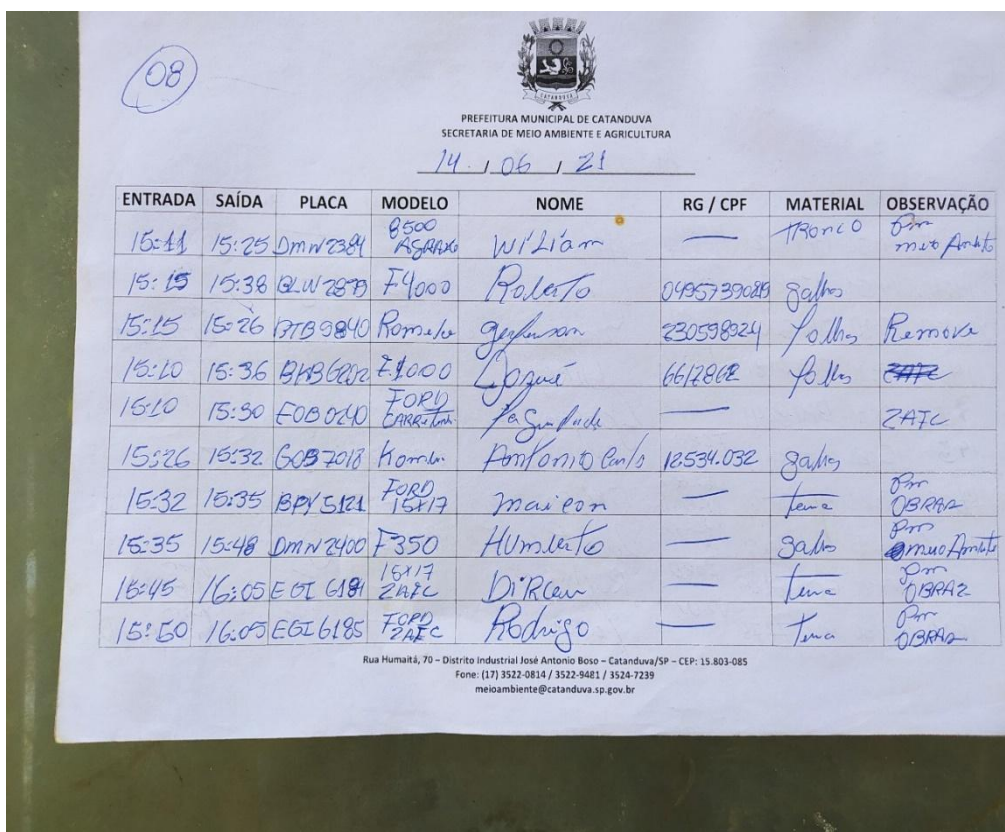 08
CATANDUVA
PREFEITURA MUNICIPAL DE CATANDUVA
SECRETARIA DE MEIO AMBIENTE E AGRICULTURA
14 / 06 / 21
ENTRADA SAÍDA PLACA MODELO NOME RG / CPF MATERIAL OBSERVAÇÃO
15:11 15:25 DMN2384 8500 Wíliam — TRONCO Pm
15:15 15:38 F4000 Roberto galhos
15:15 15:26 9840 230598924 folhas Remove
15:10 15:36 Josué folhas
15:10 15:30 FORD ZAFC
15:26 15:32 7018 Kombi Antonio Carlo 12.534.032 galhos
15:32 15:35 BPY5121 FORD 15x17 maicon — terra Pm OBRAS
15:35 15:48 DMN2400 F350 HUmberto — Pm meio Ambiente
15:45 16:05 EGI 15x17 ZAFC DiRCeu — terra Pm OBRAS
15:50 16:05 EGI6185 FORD ZAFC Rodrigo — Terra Pm OBRAS
Rua Humaitá, 70 – Distrito Industrial José Antonio Boso – Catanduva/SP – CEP: 15.803-085
Fone: (17) 3522-0814 / 3522-9481 / 3524-7239
meioambiente@catanduva.sp.gov.br